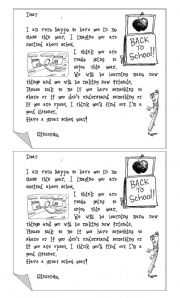 Dear
I am very happy to have you in my
class this year. I imagine you are
excited about school.
I think you are
really going to
enjoy this year.
We will be learning many new
things and we will be making new friends.
Please talk to me if you have something to
share or if you don't understand something or
if you are upset. I think you'll find out I'm a
good listener.
Have a great school year!
Sincerely,
BACK
TO
SCHOOL!
Dear
I am very happy to have you in my
class this year. I imagine you are
excited about school.
I think you are
really going to
enjoy this year.
We will be learning many new
things and we will be making new friends.
Please talk to me if you have something to
share or if you don't understand something or
if you are upset. I think you'll find out I'm a
good listener.
Have a great school year!
Sincerely,
BACK
TO
SCHOOL!